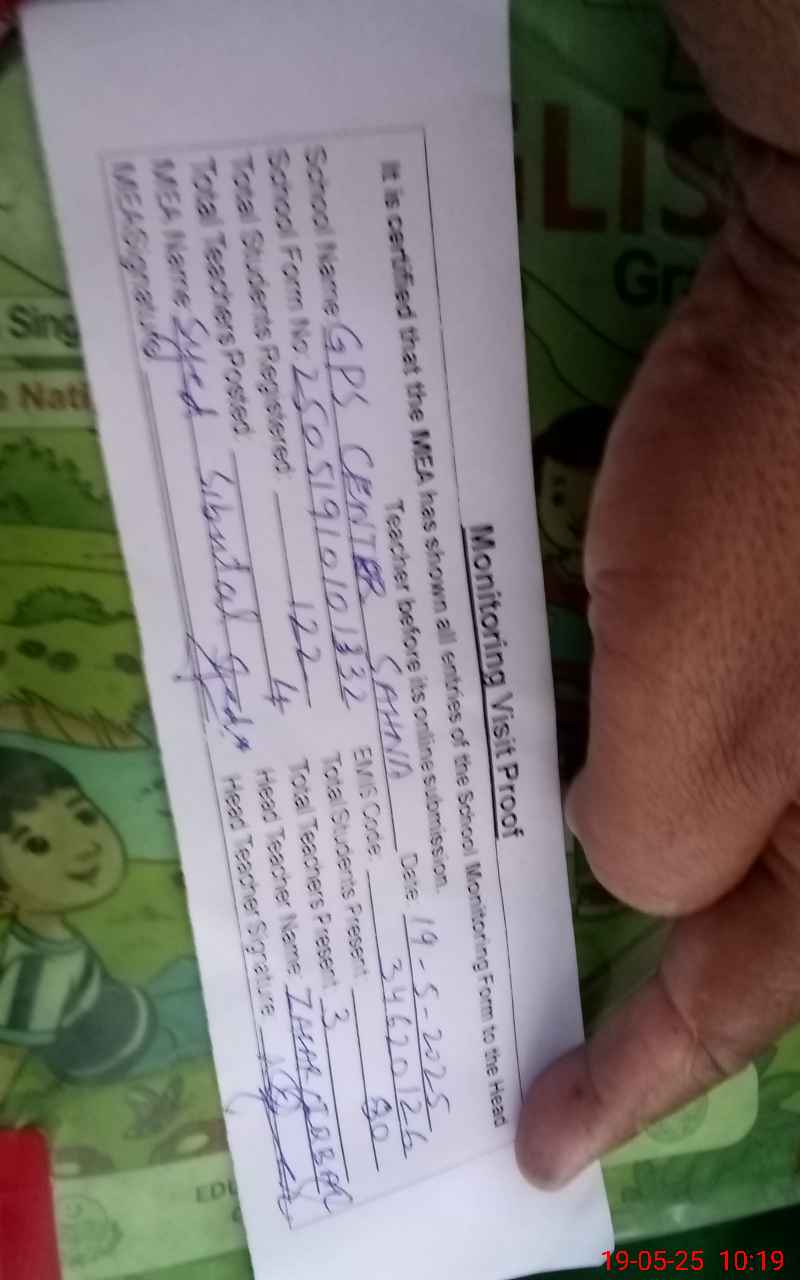 Monitoring Visit Proof
It is certified that the MEA has shown all entries of the School Monitoring Form to the Head
Teacher before its online submission.
Date: 19-5-2025
School Name: GPS CENTER SAHNA
EMIS Code: 34620126
School Form No: 25051910101332
Total Students Present: 80
Total Students Registered: 122
Total Teachers Present: 3
Total Teachers Posted: 4
Head Teacher Name:
MEA Name: Syed
Head Teacher Signature
MEA Signature
LIS
Gr
Sing
Nati
EDU
19-05-25 10:19